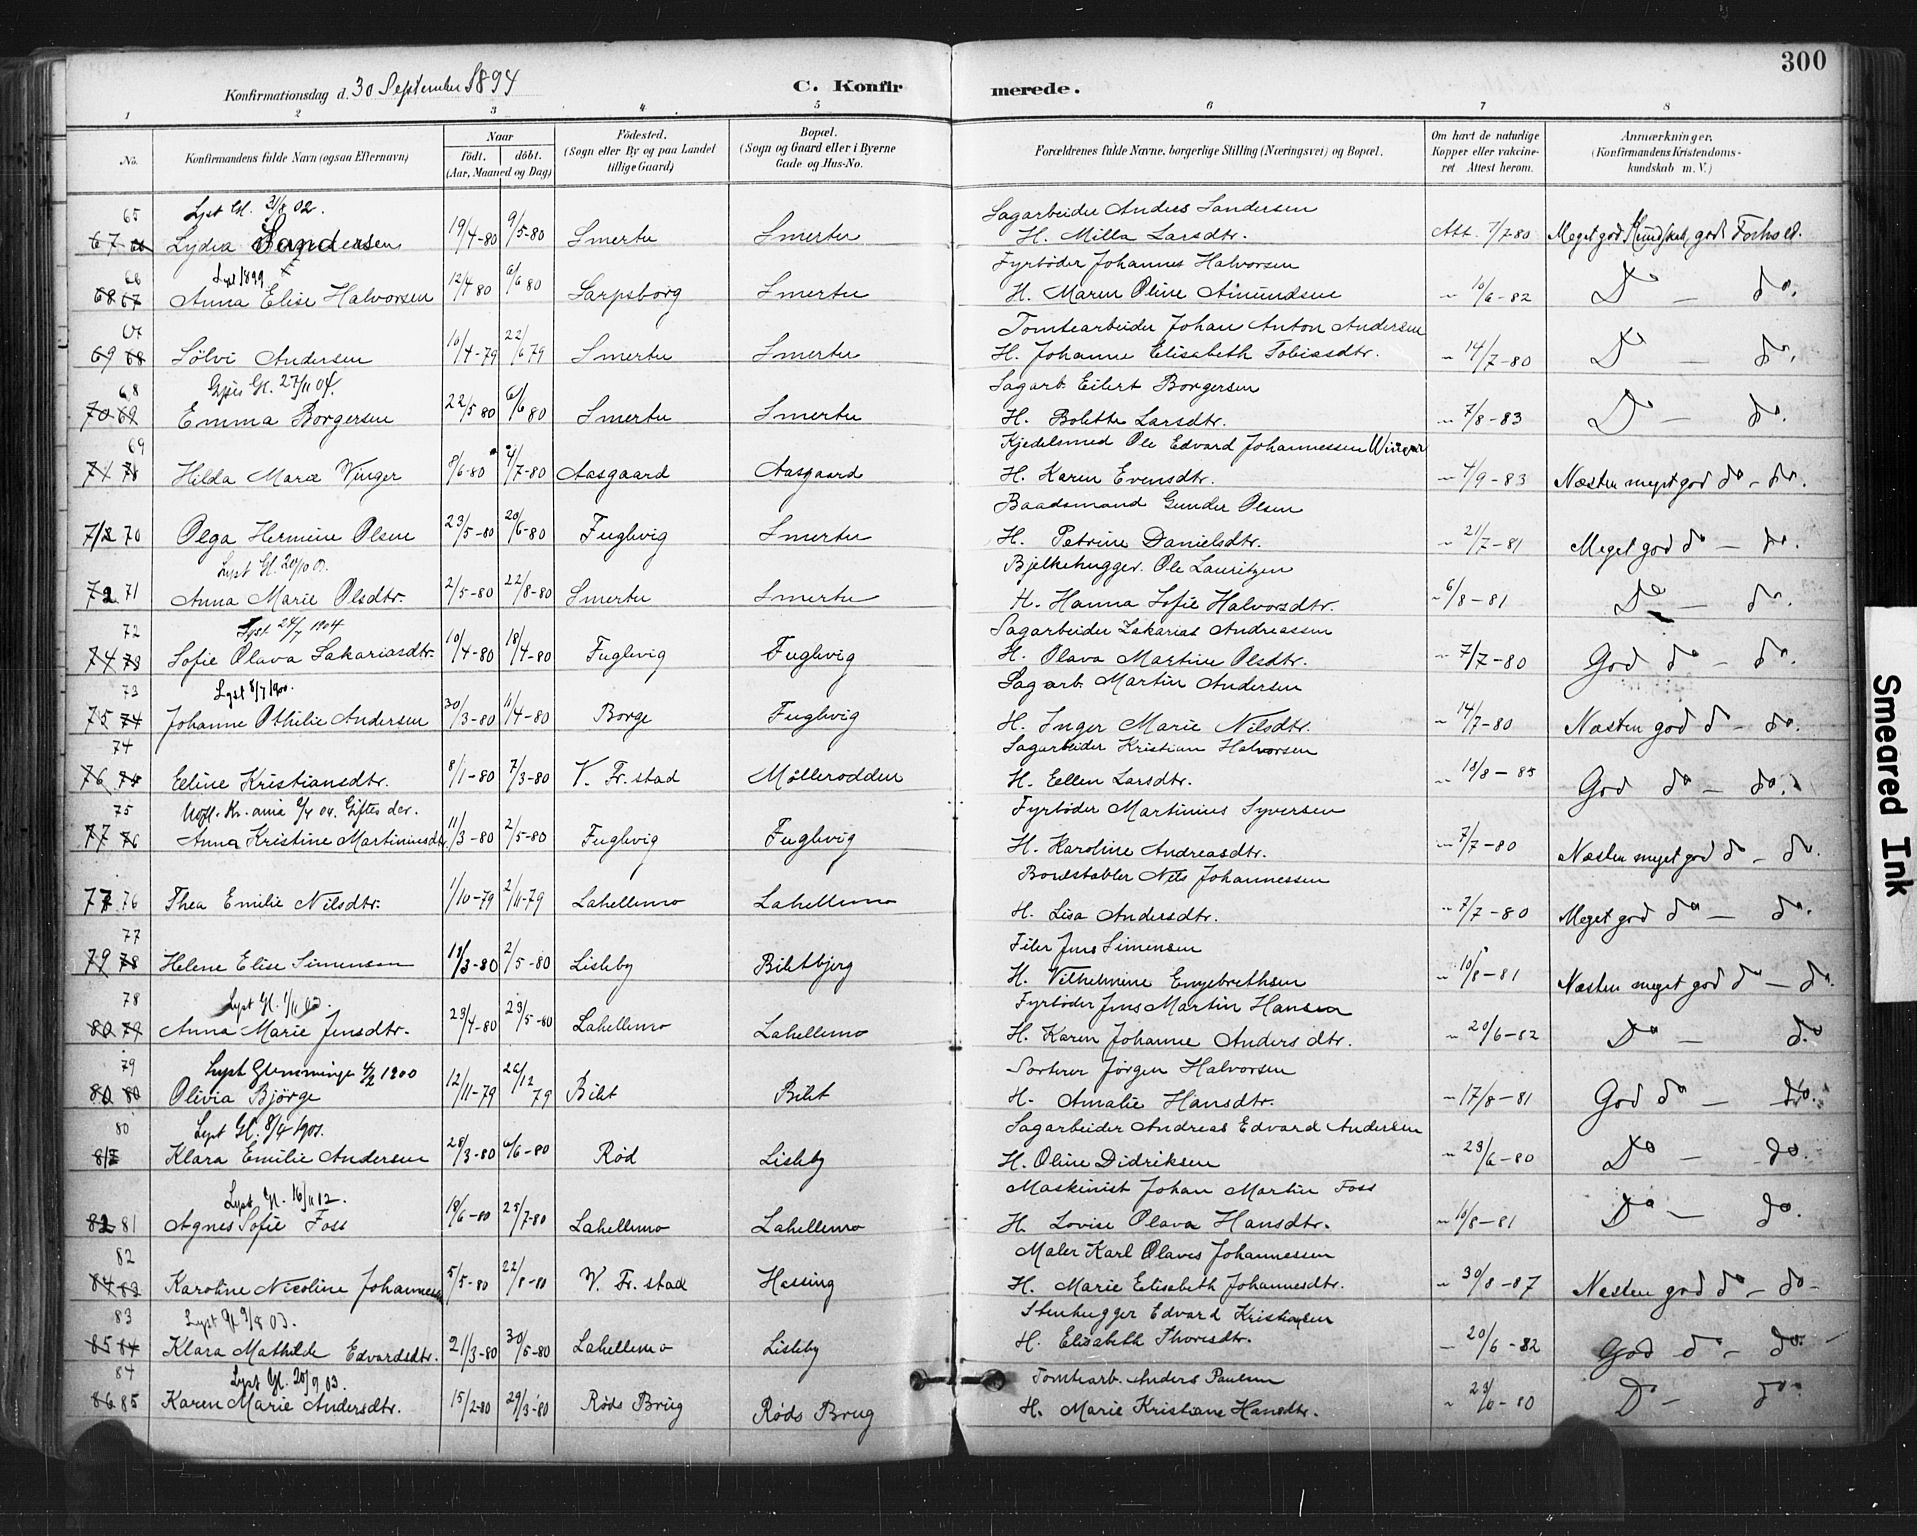 300
Konfirmationsdag d. 30 September 1894
C. Konfirmerede.
1 2 3 4 5 6 7 8
No. Konfirmandens fulde Navn (ogsaa Efternavn) Naar født. døbt. (Aar, Maaned og Dag) Fødested. (Sogn eller By og paa Landet tillige Gaard) Bopæl. (Sogn og Gaard eller i Byerne Gade og Hus-No. Forældrenes fulde Navne, borgerlige Stilling (Næringsvei) og Bopæl. Om havt de naturlige Kopper eller vakcineret. Attest herom. Anmærkninger. (Konfirmandens Kristendomskundskab m. V.)
65 Lyst Gl. 31/8 02. Sagarbeider Anders Sandersen
67 Lydia Sandersen 19/4-80 9/5-80 Smertu Smertu H. Milla Larsdtr. Att. 7/7 80 Meget god Kundskab, godt Forhold.
66 Lyst 1899 Fyrbøder Johannes Halvorsen
68 67 Anna Elise Halvorsen 12/4 80 6/6 80 Sarpsborg Smertu H. Maren Oline Amundsen " 10/6-82 Do — do.
67 Tomtearbeider Johan Anton Andersen
69 68 Sølvi Andersen 16/4-79 22/6 79 Smertu Smertu H. Johanne Elisabeth Tobiasdtr. " 14/7-80 Do — do.
68 Gl. 27/11 04. Sagarb. Eilert Borgersen
70 69 Emma Borgersen 22/5 80 6/6 80 Smertu Smertu H. Bolette Larsdtr. " 7/8-83 Do — do.
69 Kjedelsmed Ole Edvard Johannessen Winger
71 Hilda Marie Winger 8/6-80 4/7-80 Aasgaard Aasgaard H. Karen Evensdtr. " 4/9-83 Næsten meget god do — do.
Baadsmand Gunder Olsen
70 Olga Hermine Olsen 23/5-80 20/6-80 Fuglevig Smertu H. Petrine Danielsdtr. " 21/7-81 Meget god do — do.
Lyst Gl. Bjelkehugger Ole Lauritzen
72 71 Anna Marie Olsdtr. 2/5-80 22/8-80 Smertu Smertu H. Hanna Sofie Halvorsdtr. " 6/8-81 Do — do.
72 Lyst 24/7 1904 Sagarbeider Zakarias Andreassen
74 73 Sofie Olava Sakariasdtr. 10/4-80 18/4-80 Fuglevig Fuglevig H. Olava Martine Olsdtr. " 7/7-80 God do — do.
73 Lyst 8/7 1900. Sagarb. Martin Andersen
75 74 Johanne Othilie Andersen 30/3-80 11/4-80 Borge Fuglevig H. Inger Marie Nilsdtr. " 14/7-80 Næsten god do — do.
74 Sagarbeider Kristian Halvorsen
76 Eline Kristiansdtr. 8/1-80 7/3-80 V. Fr.stad Møllerodden H. Ellen Larsdtr. " 18/8-85 God do — do.
75 Kr.ania 04. Giftes der. Fyrbøder Martinius Syversen
77 76 Anna Kristine Martiniusdtr. 11/3-80 2/5-80 Fuglevig Fuglevig H. Karoline Andreasdtr. " 7/7-80 Næsten meget god do — do.
Bordstabler Nils Johannessen
77 76 Thea Emilie Nilsdtr. 1/10-79 2/11-79 Lahellemo Lahellemo H. Lisa Andersdtr. " 7/7-80 Meget god do — do.
77 Filer Jens Simensen
79 78 Helene Elise Simensen 18/3-80 2/5-80 Lisleby Biletbjerg H. Vilhelmine Engebrethsen " 10/8-81 Næsten meget god do — do.
78 Lyst Gl. 1/11 03. Fyrbøder Jens Martin Hansen
80 79 Anna Marie Jensdtr. 23/4-80 23/5-80 Lahellemo Lahellemo H. Karen Johanne Andersdtr. " 20/6-82 Do — do.
79 Lyst Glemminge 4/2 1900 Sorterer Jørgen Halvorsen
80 80 Olivia Bjørge 12/11-79 26/12 79 Bilet Bilet H. Amalie Hansdtr. " 17/8-81 God do — do.
80 Lyst Gl. 8/4 1901. Sagarbeider Andreas Edvard Andersen
Klara Emilie Andersen 28/3-80 6/6-80 Rød Lisleby H. Oline Didriksen " 23/6-80 Do — do.
Lyst Gl. 16/11 12. Maskinist Johan Martin Foss
82 81 Agnes Sofie Foss 18/6-80 25/7-80 Lahellemo Lahellemo H. Lovise Olava Hansdtr. " 10/8-81 Do — do.
82 Maler Karl Olaves Johannessen
84 83 Karoline Nicoline Johannessen 5/5-80 22/8-80 V. Fr.stad Hessing H. Marie Elisabeth Johannesdtr. " 30/8-87 Næsten god do — do-
83 Lyst Gl 9/8 03. Stenhugger Edvard Kristiansen
85 84 Klara Mathilde Edvardsdtr. 21/3-80 30/5-80 Lahellemo Lisleby H. Elisabeth Thoresdtr. " 20/6-82 God do — do.
84 Lyst Gl. 20/9 03. Tomtearb. Anders Paulsen
86 85 Karen Marie Andersdtr. 15/2-80 29/3-80 Røds Brug Røds Brug H. Marie Kristiane Hansdtr. " 23/6-80 Do — do.
Smeared Ink